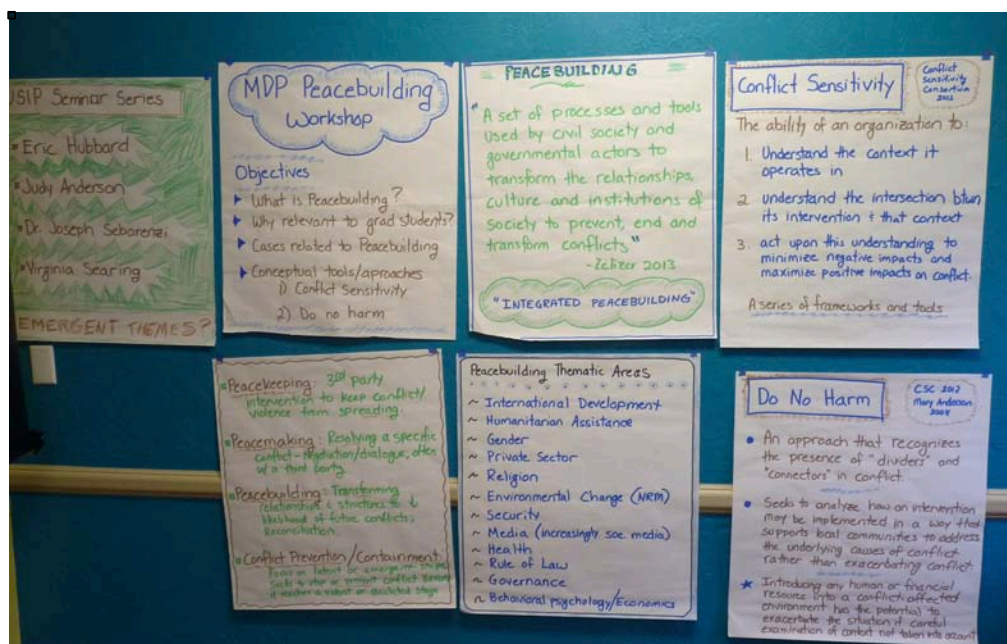 USIP Seminar Series
Eric Hubbard
Judy Anderson
Dr. Joseph Sebarenzi
Virginia Searing
EMERGENT THEMES?
MDP Peacebuilding
Workshop
Objectives
What is Peacebuilding?
Why relevant to grad students?
Cases related to Peacebuilding
Conceptual tools/aproaches
1) Conflict Sensitivity
2) Do no harm
PEACEBUILDING
"A set of processes and tools
used by civil society and
governmental actors to
transform the relationships,
culture and institutions of
society to prevent, end and
transform conflicts"
-Zelizer 2013
"INTEGRATED PEACEBUILDING"
Conflict Sensitivity
Conflict
Sensitivity
Consortium
2012
The ability of an organization to:
1. Understand the context it
operates in
2. understand the intersection btwn
its intervention & that context
3. act upon this understanding to
minimize negative impacts and
maximize positive impacts on conflict.
A series of frameworks and tools
Peacekeeping: 3rd party
intervention to keep conflict/
violence from spreading.
Peacemaking: Resolving a specific
conflict - negotiation/dialogue, often
w/ a third party.
Peacebuilding: Transforming
relationships & structures to ↓
likelihood of future conflicts;
Reconciliation
Conflict Prevention/Containment:
Focus on latent or emergent
Seeks to stop or prevent conflict before
it reaches a violent or escalated stage
Peacebuilding Thematic Areas
~ International Development
~ Humanitarian Assistance
~ Gender
~ Private Sector
~ Religion
~ Environmental Change (NRM)
~ Security
~ Media (increasingly soc. media)
~ Health
~ Rule of Law
~ Governance
~ Behavioral psychology/Economics
Do No Harm
CSC 2012
Mary Anderson
2004
An approach that recognizes
the presence of "dividers" and
"connectors" in conflict.
Seeks to analyze how an intervention
may be implemented in a way that
supports local communities to address
the underlying causes of conflict
rather than exacerbating conflict.
★ Introducing any human or financial
resource into a conflict-affected
environment has the potential to
exacerbate the situation if careful
examination of context not taken into account